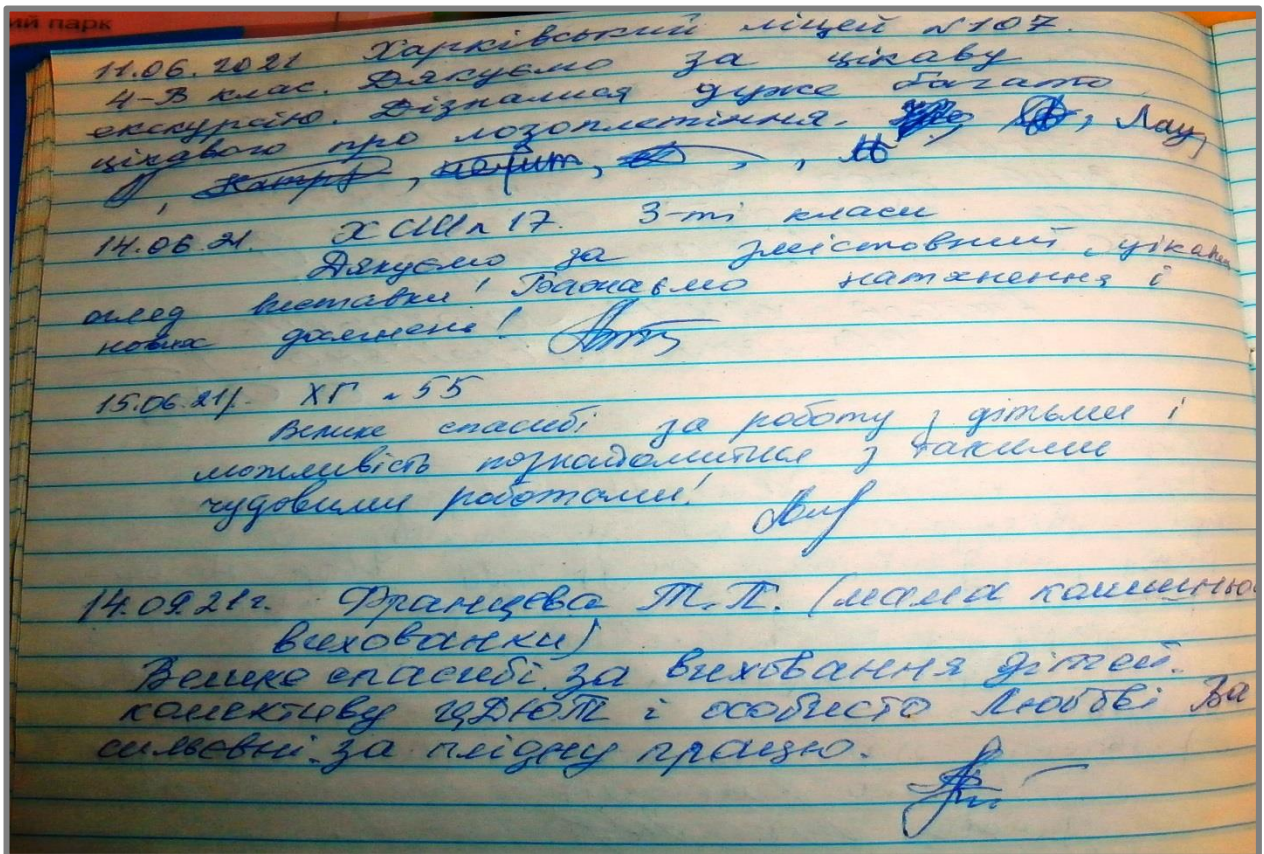 ий парк
11.06.2021 Харківський ліцей №107.
4-В клас. Дякуємо за цікаву
екскурсію. Дізналися дуже багато
цікавого про лозоплетіння.
14.06.21. ХСШ №17. 3-ті класи
Дякуємо за змістовний, цікавий
огляд виставки! Бажаємо натхнення і
нових досягнень!
15.06.21р. ХГ №55
Велике спасибі за роботу з дітьми і
можливість познайомитися з такими
чудовими роботами!
14.09.21г. Францева Т.П. (мама колишньої
вихованки)
Велике спасибі за виховання дітей.
колективу ЦДЮТ і особисто Любові Ва
сильевні за плідну працю.